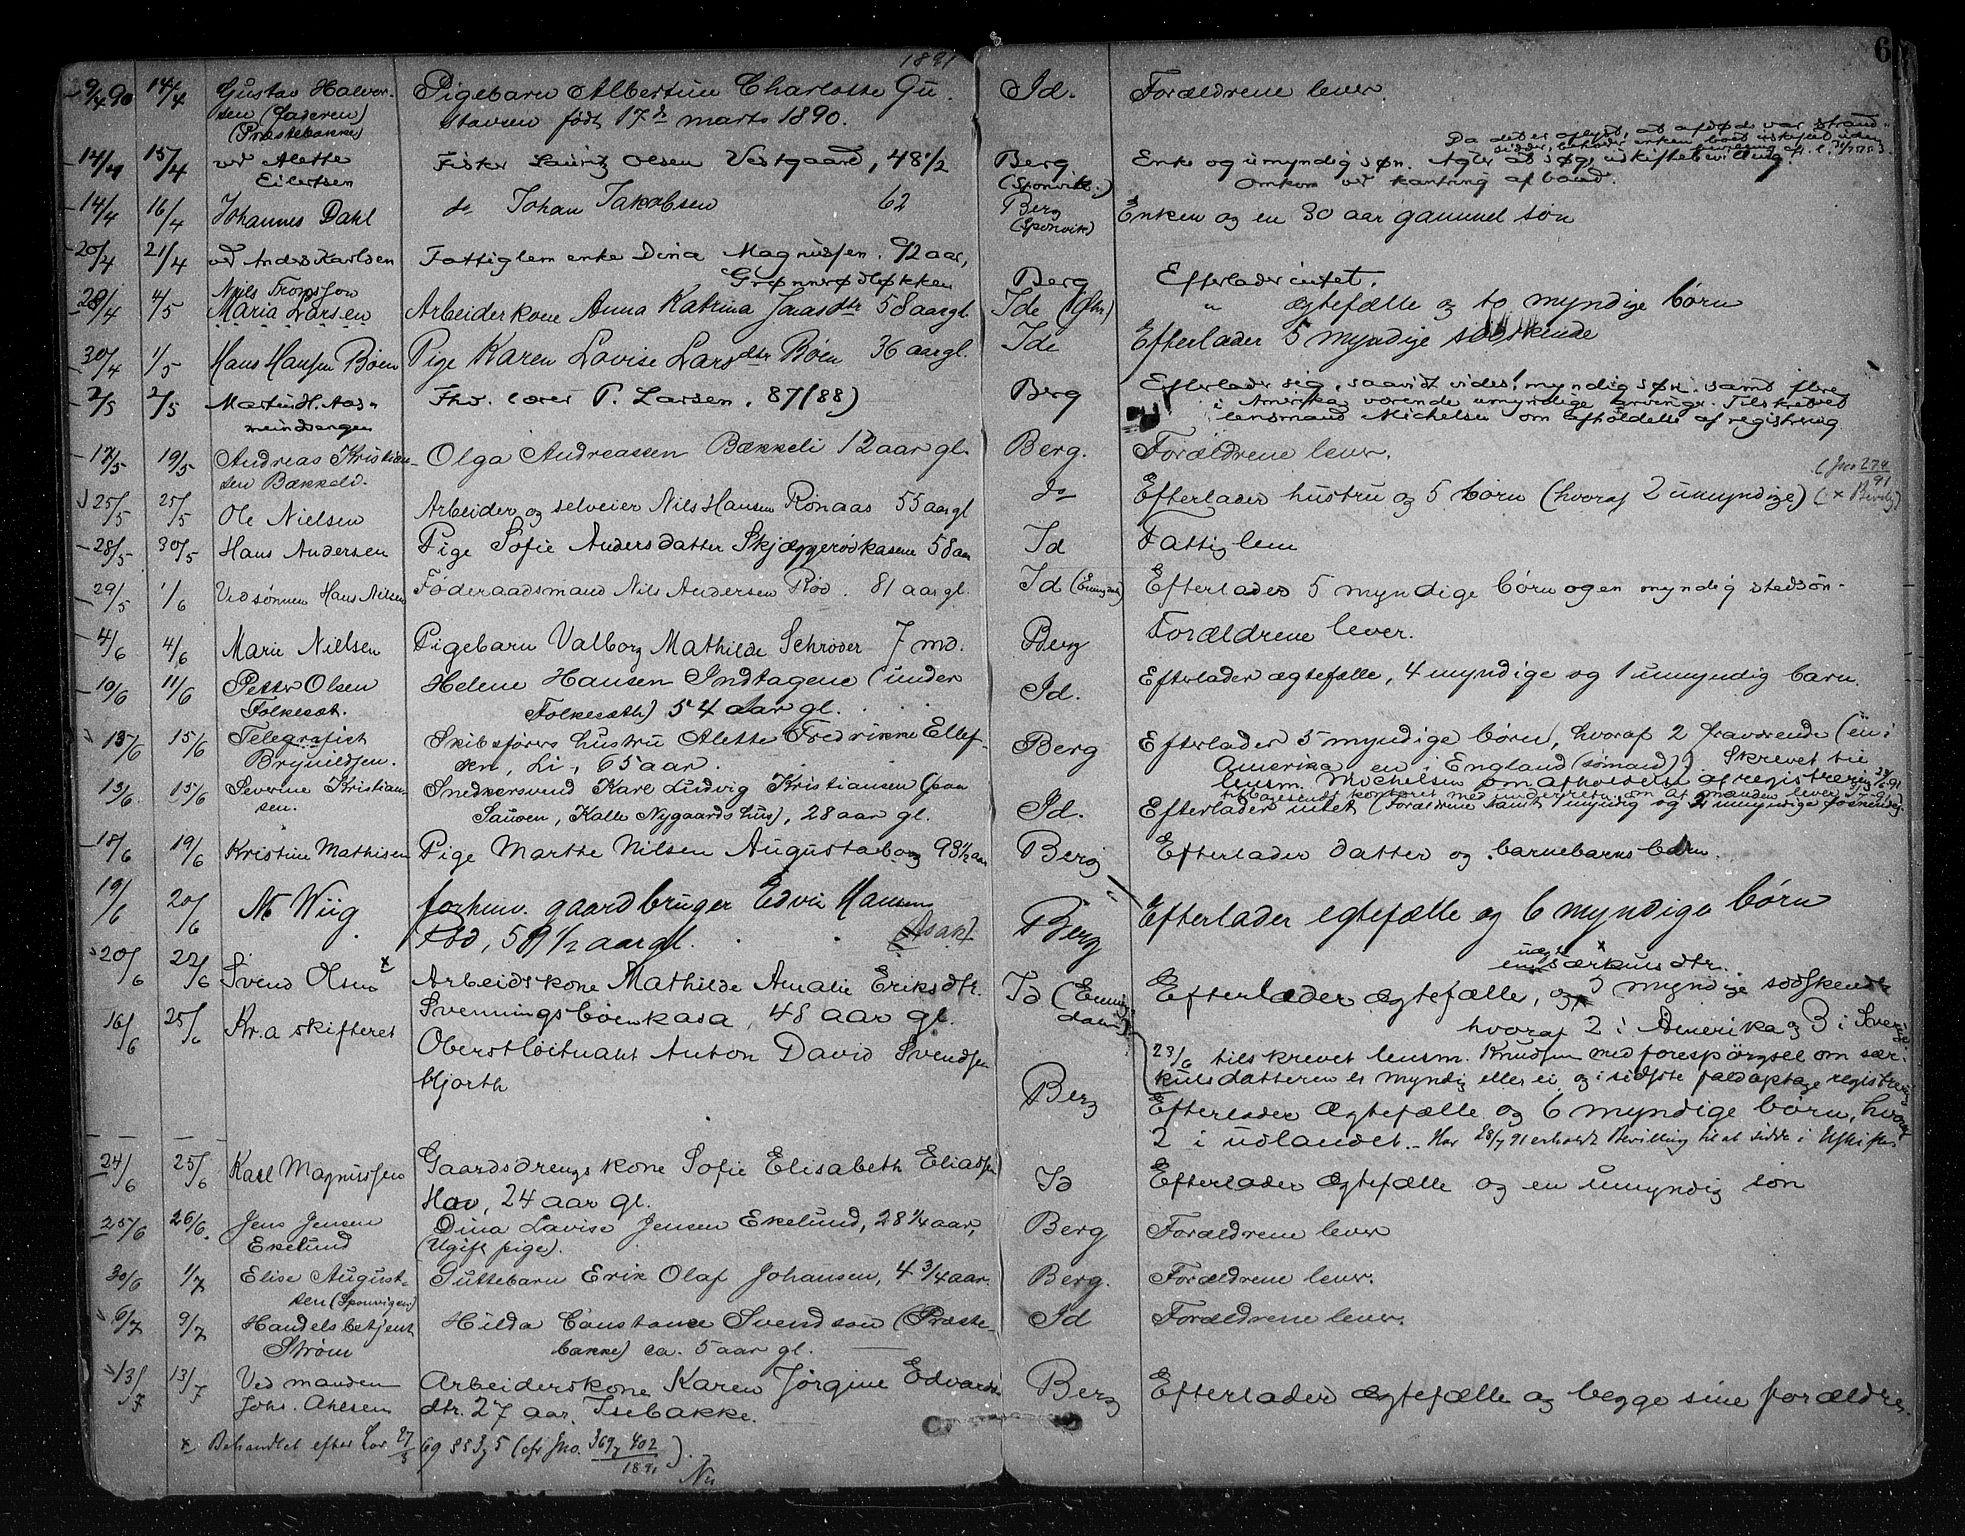 1891
6
9/4 90 14/4 Gustav Halvor- Pigebarn Albertine Charlotte Gu- Id. Forældrene lever
sen (faderen) stavsen født 17de marts 1890.
(Præstebakke)
Da det er oplyst, at afdød var strand-
sidder, beholder enken boet uskiftet uden
14/4 15/4 ved Alette Fisker Lauritz Olsen Vestgaard, 48 1/2 Berg Enke og umyndig søn. Agter at søge uskiftebevilling.
Eilertsen (Sponvik.) Omkom ved kantring af baad.
14/4 16/4 Johannes Dahl do Johan Jakobsen 62 Berg Enken og en 30 aar gammel søn
(Sponvik)
20/4 21/4 ved Anders Karlsen Fattiglem enke Dina Magnussen. 92 aar,
Grønnerødløkken Berg Efterlader intet.
Nils Tronsson
28/4 4/5 Maria Larsen Arbeiderkone Anna Katrina Jonasdtr 58 aar gl. Ide " ægtefælle og to myndige børn
30/4 1/5 Hans Hansen Bøen Pige Karen Lovise Larsdtr Bøen 36 aar gl. Ide Efterlader 5 myndige sødskende
2/5 2/5 Martin H. Aas- Fhv. lærer P. Larsen, 87 (88) Berg Efterlader sig, saavidt vides, myndig søn samt flere
meindvangen i Amerika værende umyndige arvinger. Tilskrevet
lensmand Michelsen om afholdelse af registrering
17/5 19/5 Andreas Kristian- Olga Andreassen Bækkeli 12 aar gl. Berg. Forældrene lever.
sen Bækkeli. (Jno 274/91
25/5 25/5 Ole Nielsen Arbeider og selveier Nils Hansen Rønaas 55 aar gl do Efterlader hustru og 5 børn (hvoraf 2 umyndige)
28/5 30/5 Hans Andersen Pige Sofie Andersdatter Skjæggerødkasene 58 aar Id Fattiglem
29/5 1/6 Ved sønnen Hans Nilsen Føderaadsmand Nils Andersen Rød. 81 aar gl. Id (Enningdalen) Efterlader 5 myndige børn og en myndig stedsøn.
4/6 4/6 Marie Nielsen Pigebarn Valborg Mathilde Schrøder 7 md. Berg Forældrene lever.
10/6 11/6 Petter Olsen Helene Hansen Indtagene (under Id. Efterlader ægtefælle, 4 myndige og 1 umyndig barn.
Folkesæt. Folkesæth) 54 aar gl.
13/6 15/6 Telegrafist Skibsførers hustru Alette Fredrikke Ellef- Berg Efterlader 5 myndige børn, hvoraf 2 fraværende (en i
Brynildsen. sen, Li, 65 aar. Amerika en i England (sømand)). Skrevet til
lensm. Michelsen om afholdelse af registrering
13/6 15/6 Severine Kristian- Snedkersvend Karl Ludvig Kristiansen (paa
sen. Sauøen, Kalle Nygaards hus), 28 aar gl. Id. Efterlader intet (Forældrene samt 1 myndig og 2 umyndige søskende)
18/6 19/6 Kristine Mathisen Pige Marthe Nilsen Augustaborg 93 1/2 aar Berg Efterlader datter og barnebarns barn.
19/6 20/6 N. Wiig forhenv. gaardbruger Edvin Hansen Berg Efterlader egtefælle og 6 myndige børn
Rød, 59 1/2 aar gl. (Asak)
ugte x
en særkuls dtr.
20/6 22/6 Svend Olsen x Arbeidskone Mathilde Amalie Eriksdtr. Id (Enning- Efterlader ægtefælle, og 5 myndige sødskende
Svenningsbøenkasa, 48 aar gl. dalen) hvoraf 2 i Amerika og 3 i Sverige
16/6 25/6 Kr.a skifteret Oberstløitnant Anton David Svendsen 23/6 tilskrevet lensm. Knudsen med forespørgsel om sær-
Hjorth kulsdatteren er myndig eller ei og i sidste fald optage registrering
Berg Efterlader ægtefælle og 6 myndige børn, hvoraf
2 i udlandet. Har 28/7 91 erholdt Bevilling til at sidde i Uskiftet
24/6 25/6 Karl Magnussen Gaardsdrengs kone Sofie Elisabeth Eliassen Id Efterlader ægtefælle og en umyndig søn
Hov, 24 aar gl.
25/6 26/6. Jens Jensen Dina Lavise Jensen Ekelund, 28 1/4 aar, Berg Forældrene lever
Ekelund (Ugift pige).
30/6 1/7 Elise August- Guttebarn Erik Olaf Johansen, 4 3/4 aar. Berg. Forældrene lever.
sen (Sponvigen)
6/7 9/7 Handelsbetjent Hilda Constance Svendsen (Præste- Id Forældrene lever.
Strøm bakke) ca. 5 aar gl.
13/7 13/7 Ved manden Arbeiderskone Karen Jørgine Edvards- Berg Efterlader ægtefælle og begge sine forældre.
Johs. Ahlsen dtr. 27 aar. Isebakke.
x Behandlet efter Lov 27/3 69 §§ 3, 5 (cfr Jno. 369, 402/1891).